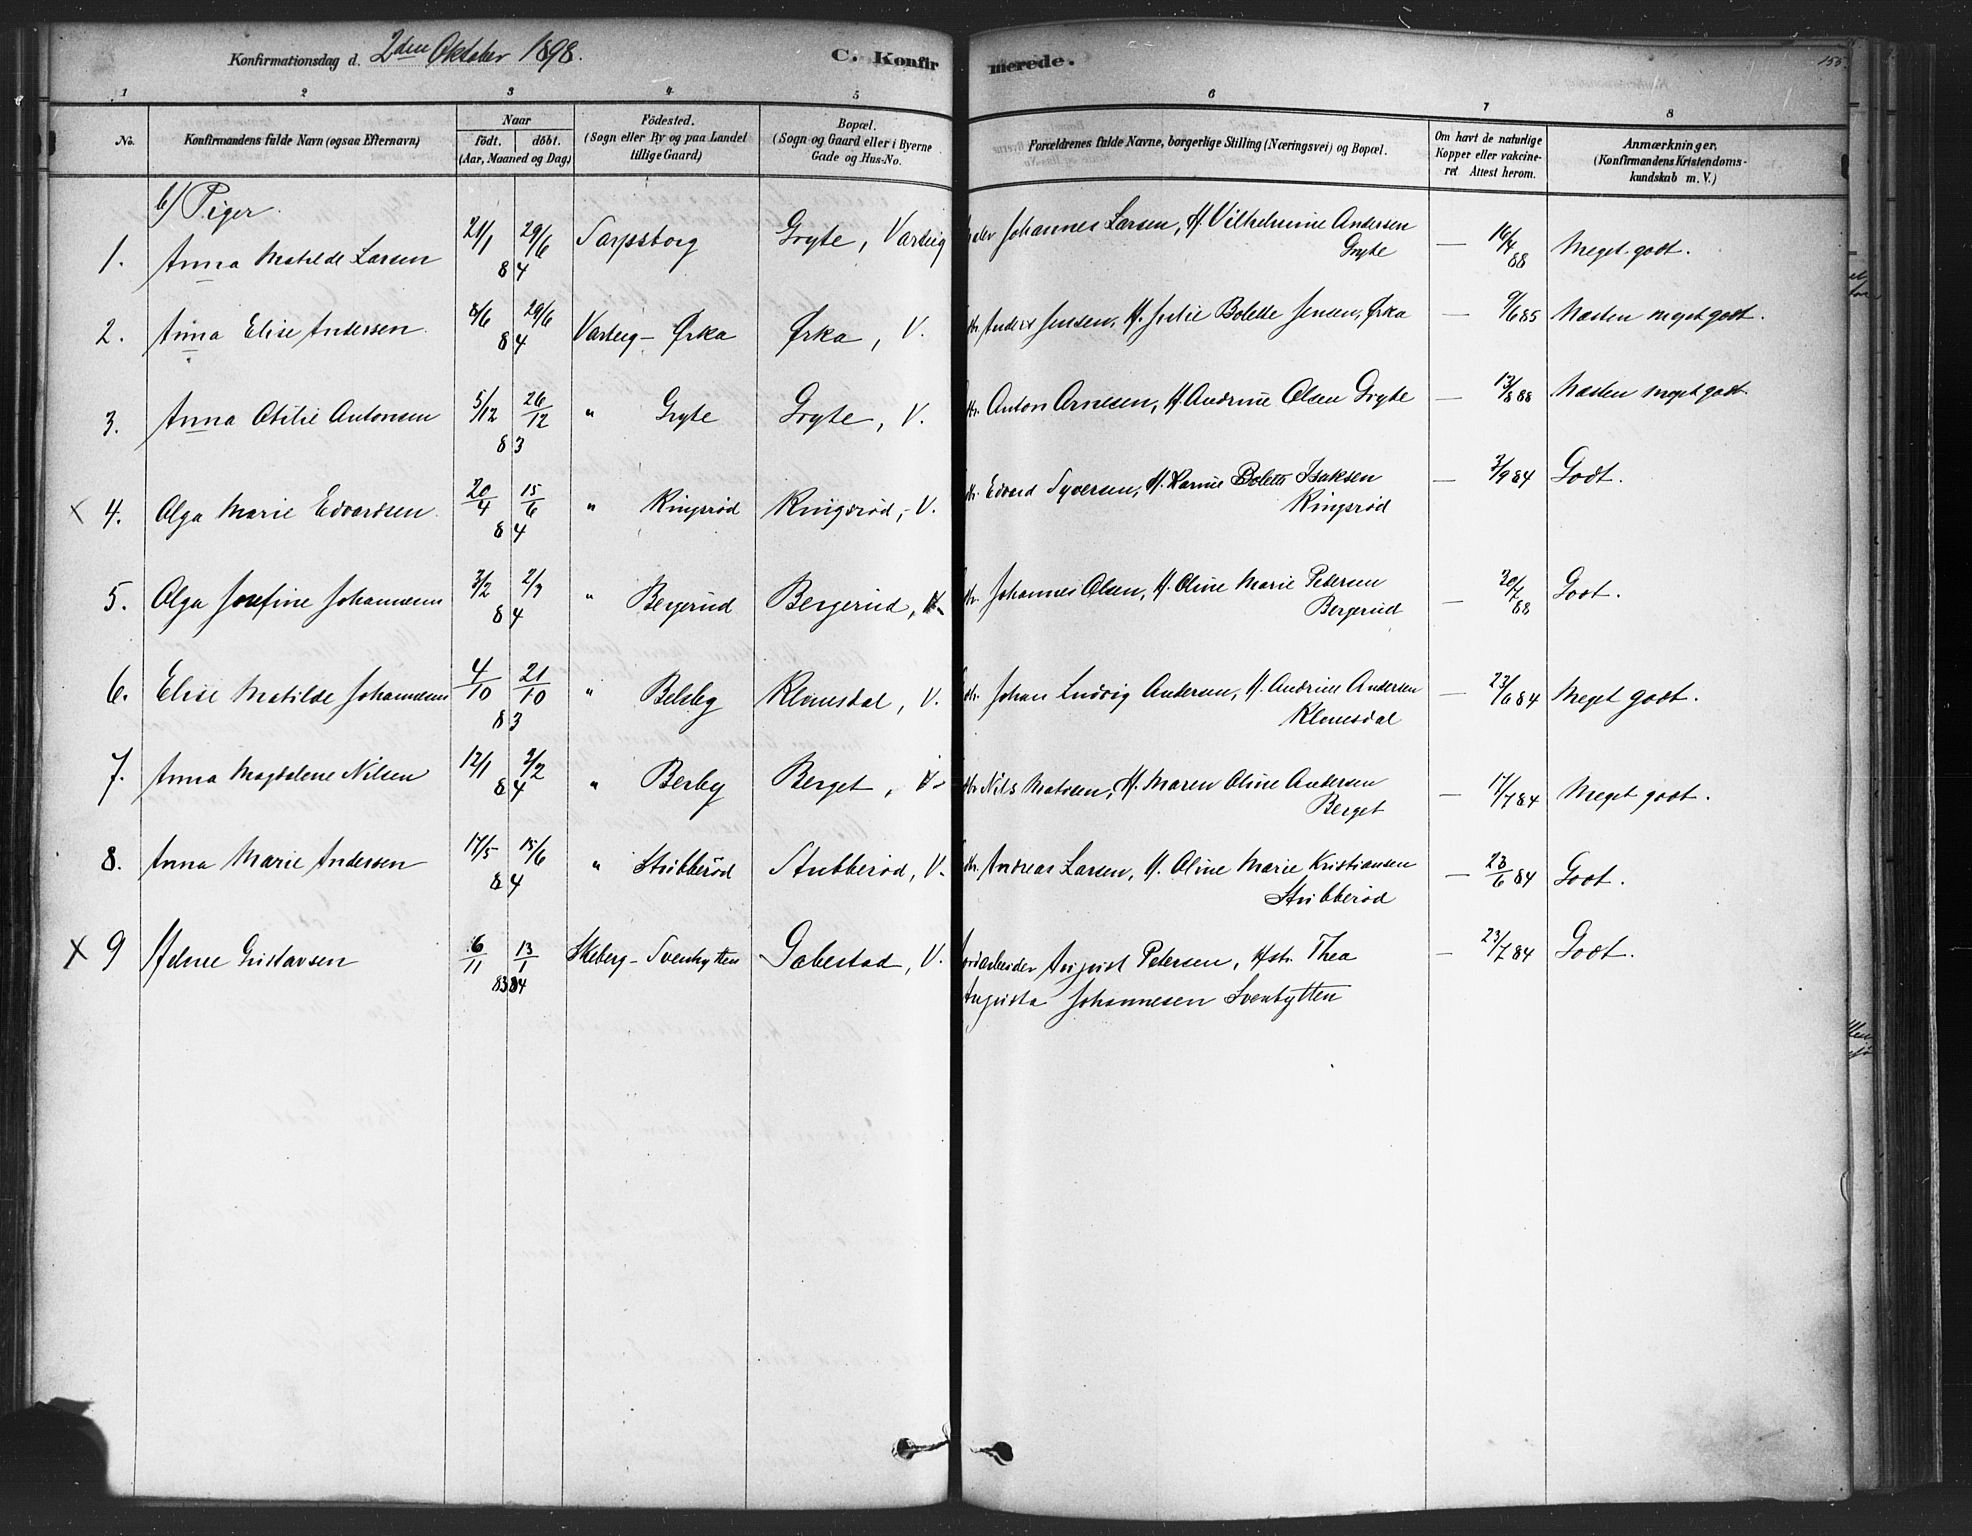 Konfirmationsdag d. 2den Oktober 1898. C. Konfirmerede. 155.
1 2 3 4 5 6 7 8
No. Konfirmandens fulde Navn (ogsaa Efternavn) Naar födt. döbt. (Aar, Maaned og Dag) Födested. (Sogn eller By og paa Landet tillige Gaard) Bopæl. (Sogn og Gaard eller i Byerne Gade og Hus-No. Forældrenes fulde Navne, borgerlige Stilling (Næringsvei) og Bopæl. Om havt de naturlige Kopper eller vakcineret Attest herom. Anmærkninger, (Konfirmandens Kristendomskundskab m. V.)
b) Piger.
1. Anna Matilde Larsen 21/1 29/6 84 Sarpsborg Gryte, Varteig Johannes Larsen, H. Vilhelmine Andersen Gryte — 16/4 88 Meget godt.
2. Anna Elise Andersen. 8/6 29/6 84 Varteig – Ørka Ørka, V. Anders Jensen, H. Julie Bolette Jensen, Ørka — 9/6 85 Næsten meget godt.
3. Anna Otilie Antonsen 5/12 26/12 83 " Gryte Gryte, V. Anton Arnesen, H. Andrine Olsen Gryte — 13/8 88 Næsten meget godt.
x 4. Olga Marie Edvardsen. 20/4 15/6 84 " Ringsrød Ringsrød, V. Edvard Syversen, H. Karine Bolette Isaksen Ringsrød — 3/9 84 Godt.
5. Olga Josefine Johannesen 3/2 2/3 84 " Bergerud Bergerud, V. Johannes Olsen, H. Oline Marie Pedersen Bergerud — 20/7 88 Godt.
6. Elise Matilde Johannesen 4/10 21/10 83 " Belsby Klomsdal, V. Johan Ludvig Andersen, H. Andrine Andersen Klomsdal — 23/6 84 Meget godt.
7. Anna Magdalene Nilsen 12/1 2/2 84 " Berby Berget, V. Nils Matisen, H. Maren Oline Andersen Berget — 17/7 84 Meget godt.
8. Anna Marie Andersen 17/5 15/6 84 " Stubberød Stubberød, V. Andreas Larsen, H. Oline Marie Kristiansen Stubberød — 23/6 84 Godt.
x 9 Gustavsen 6/11 83 13/1 84 Skeberg – Svenbytten Gabestad, V. Jordarbeider August Petersen, Hstr. Thea
Augusta Johannesen Svenbytten — 23/7 84 Godt.